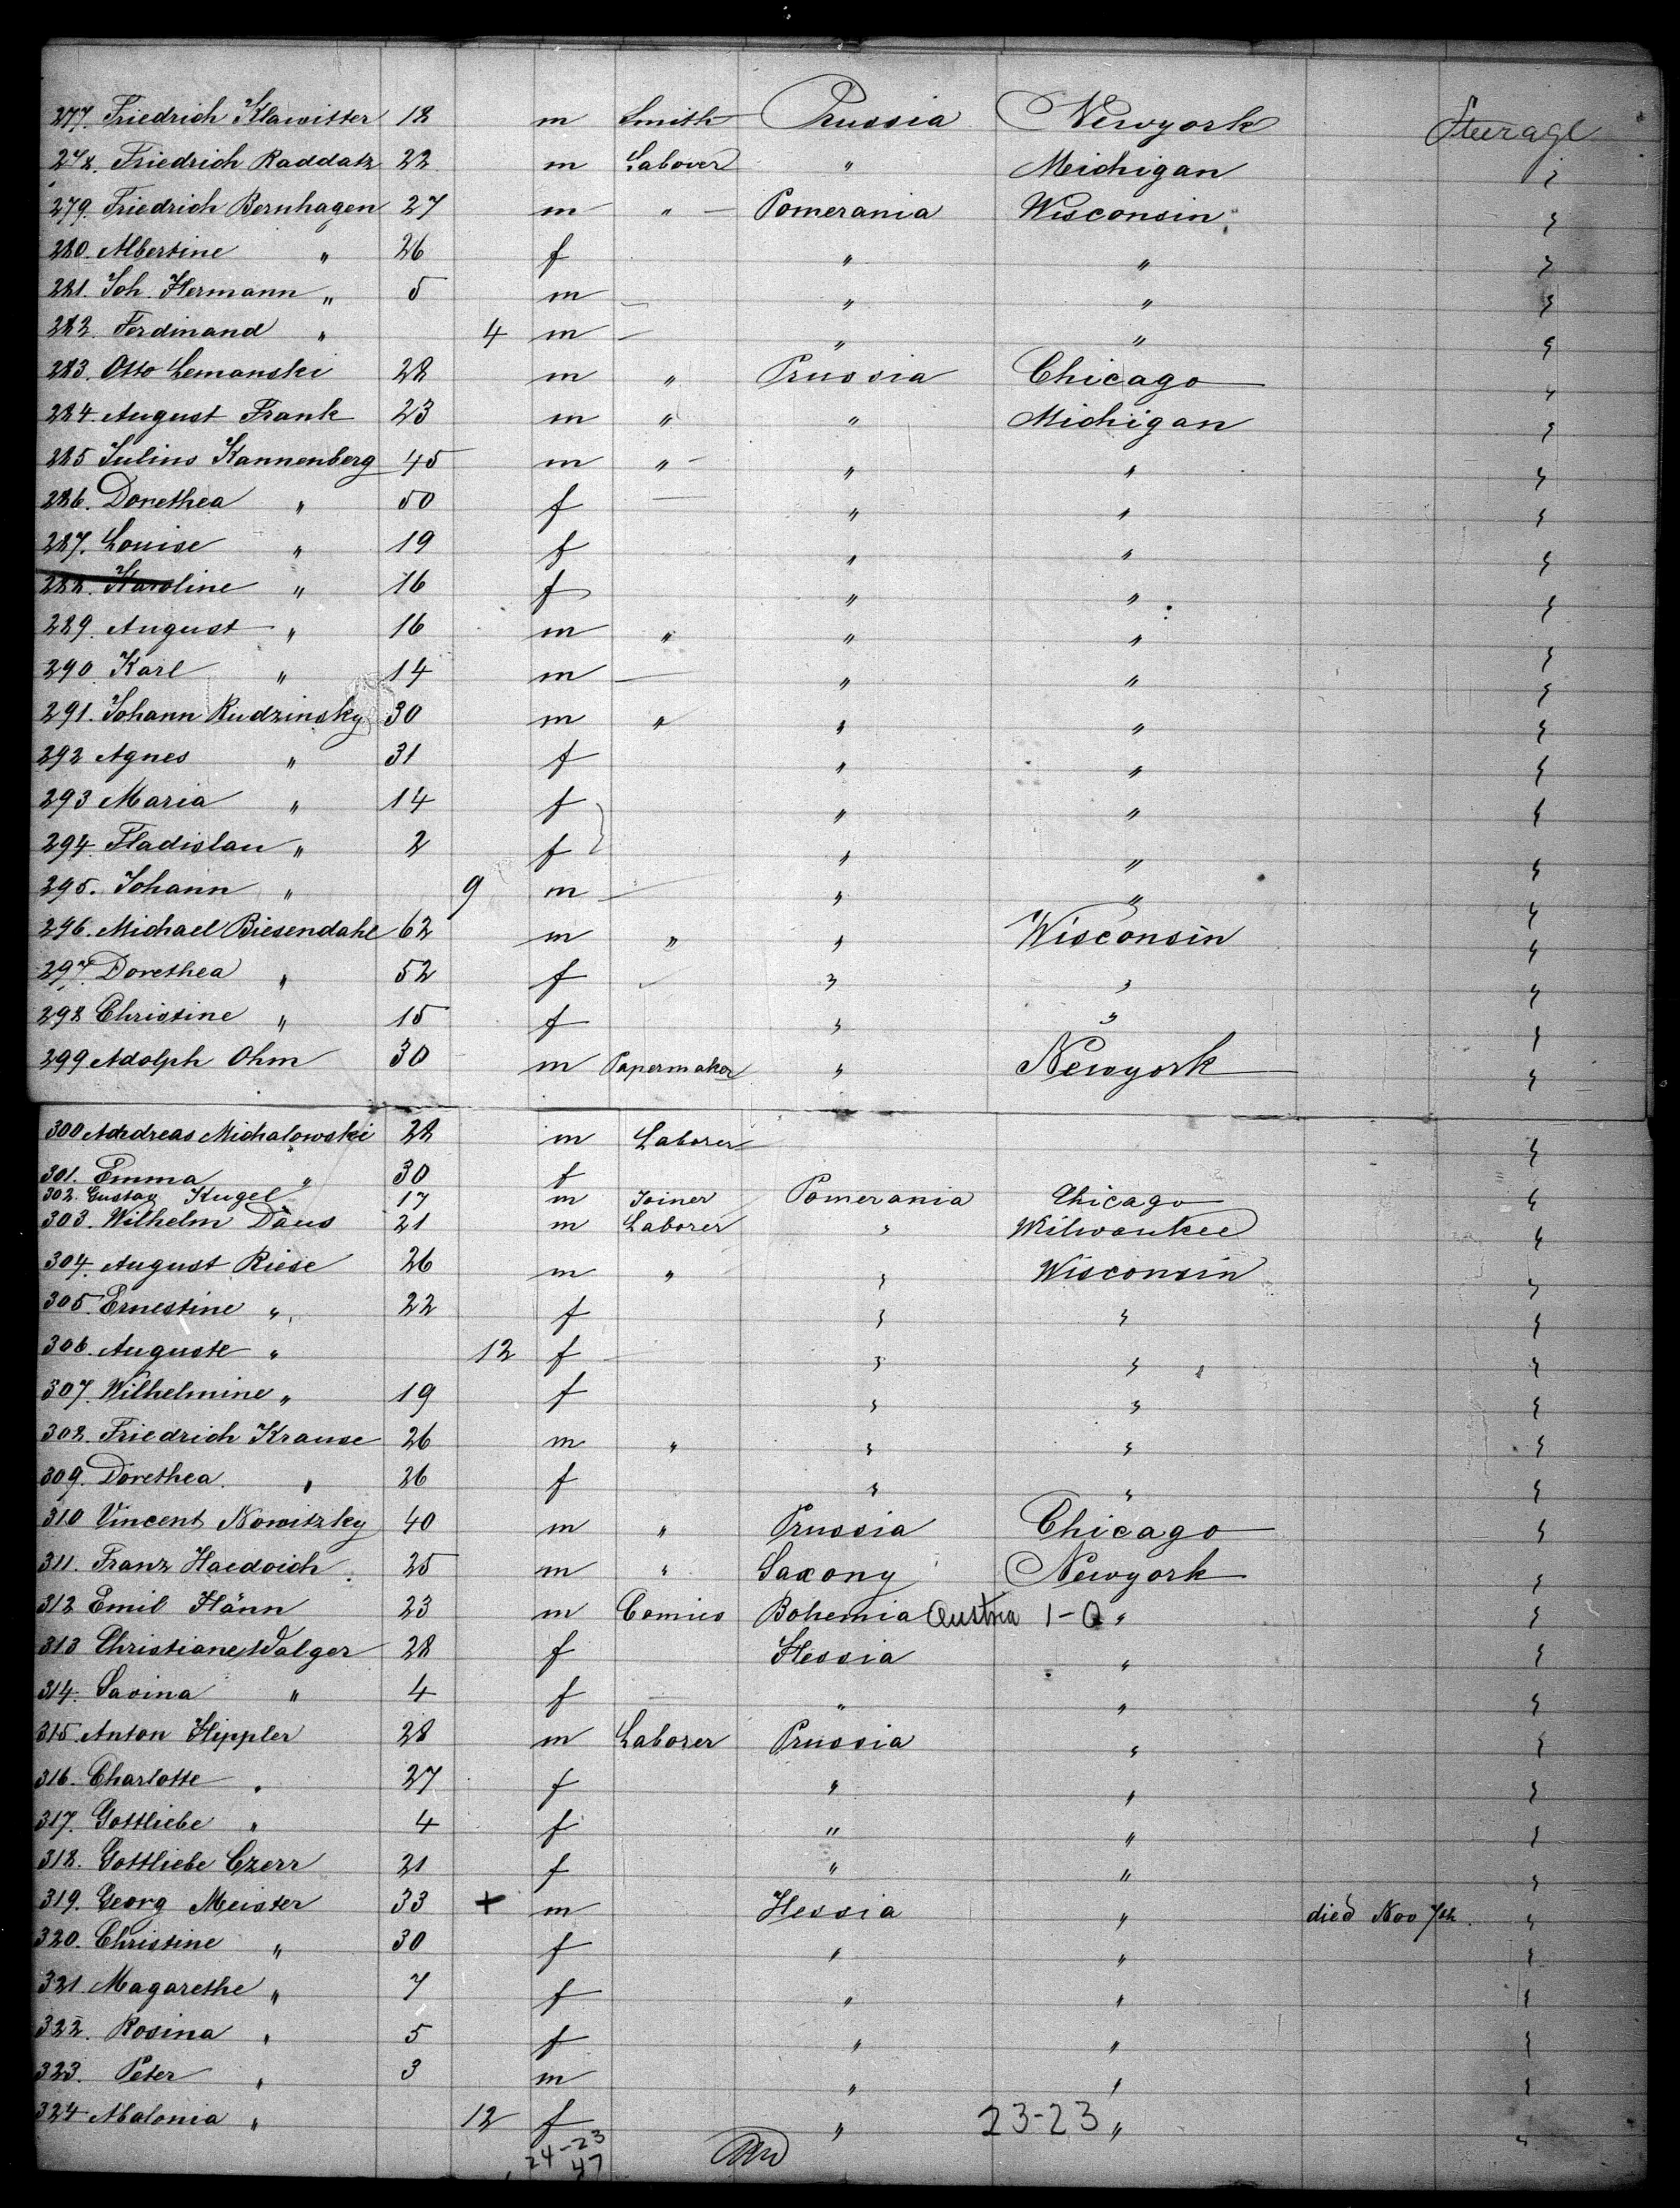 277. Friedrich Klawitter 18 m Smith Prussia Newyork Steerage
278. Friedrich Raddatz 22 m Laborer " Meichigan "
279. Friedrich Bernhagen 27 m " Pomerania Wisconsin "
280. Albertine " 26 f " " "
281. Joh. Hermann " 5 m — " " "
282. Ferdinand " 4 m — " " "
283. Otto Lemanski 28 m " Prussia Chicago "
284. August Frank 23 m " " Michigan "
285 Julius Kannenberg 45 m " " " "
286. Dorethea " 50 f — " " "
287. Louise " 19 f " " "
288. Karoline " 16 f " " "
289. August " 16 m " " " "
290. Karl " 14 m — " " "
291. Johann Rudzinsky 30 m " " " "
292 Agnes " 31 f " " "
293 Maria " 14 f " " "
294. Fladislau " 2 f " " "
295. Johann " 9 m — " " "
296. Michael Biesendahl 62 m " " Wisconsin "
297. Dorethea " 52 f " " "
298 Christine " 15 f " " "
299 Adolph Ohm 30 m Papermaker " Newyork "
300 Andreas Michalowski 28 m Laborer "
301. Emma " 30 f
302. Gustav Kugel 17 m Joiner Pomerania Chicago "
303. Wilhelm Däus 21 m Laborer " Milwaukee "
304. August Riese 26 m " " Wisconsin "
305. Ernestine " 22 f " " "
306. Auguste " 12 f " " "
307. Wilhelmine " 19 f " " "
308. Friedrich Krause 26 m " " " "
309. Dorethea " 26 f " " "
310 Vincent Nowitzky 40 m " Prussia Chicago "
311. Franz 25 m " Saxony Newyork "
312 Emil Hänn 23 m Comico Bohemia Austria 1-0 " "
313 Christiane Walger 28 f Hessia " "
314. Savina " 4 f " " "
315. Anton Hippler 28 m Laborer Prussia " "
316. Charlotte " 27 f " " "
317. Gottliebe " 4 f " " "
318. Gottliebe Czerr 21 f " " "
319. Georg Meister 33 + m Hessia " died Nov 7th. "
320. Christine " 30 f " " "
321 Magarethe " 7 f " " "
322. Rosina " 5 f " " "
323. Peter " 3 m " " "
324 Malonia " 12 f " 23-23 " "
24-23
47